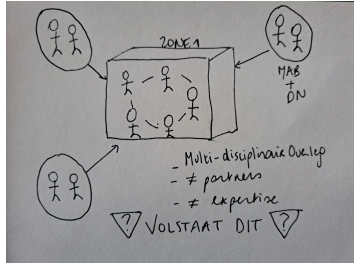 ZONE 1
MAB
+
DN
- Multi-disciplinair Overleg
- ≠ partners
- ≠ expertise
? VOLSTAAT DIT ?